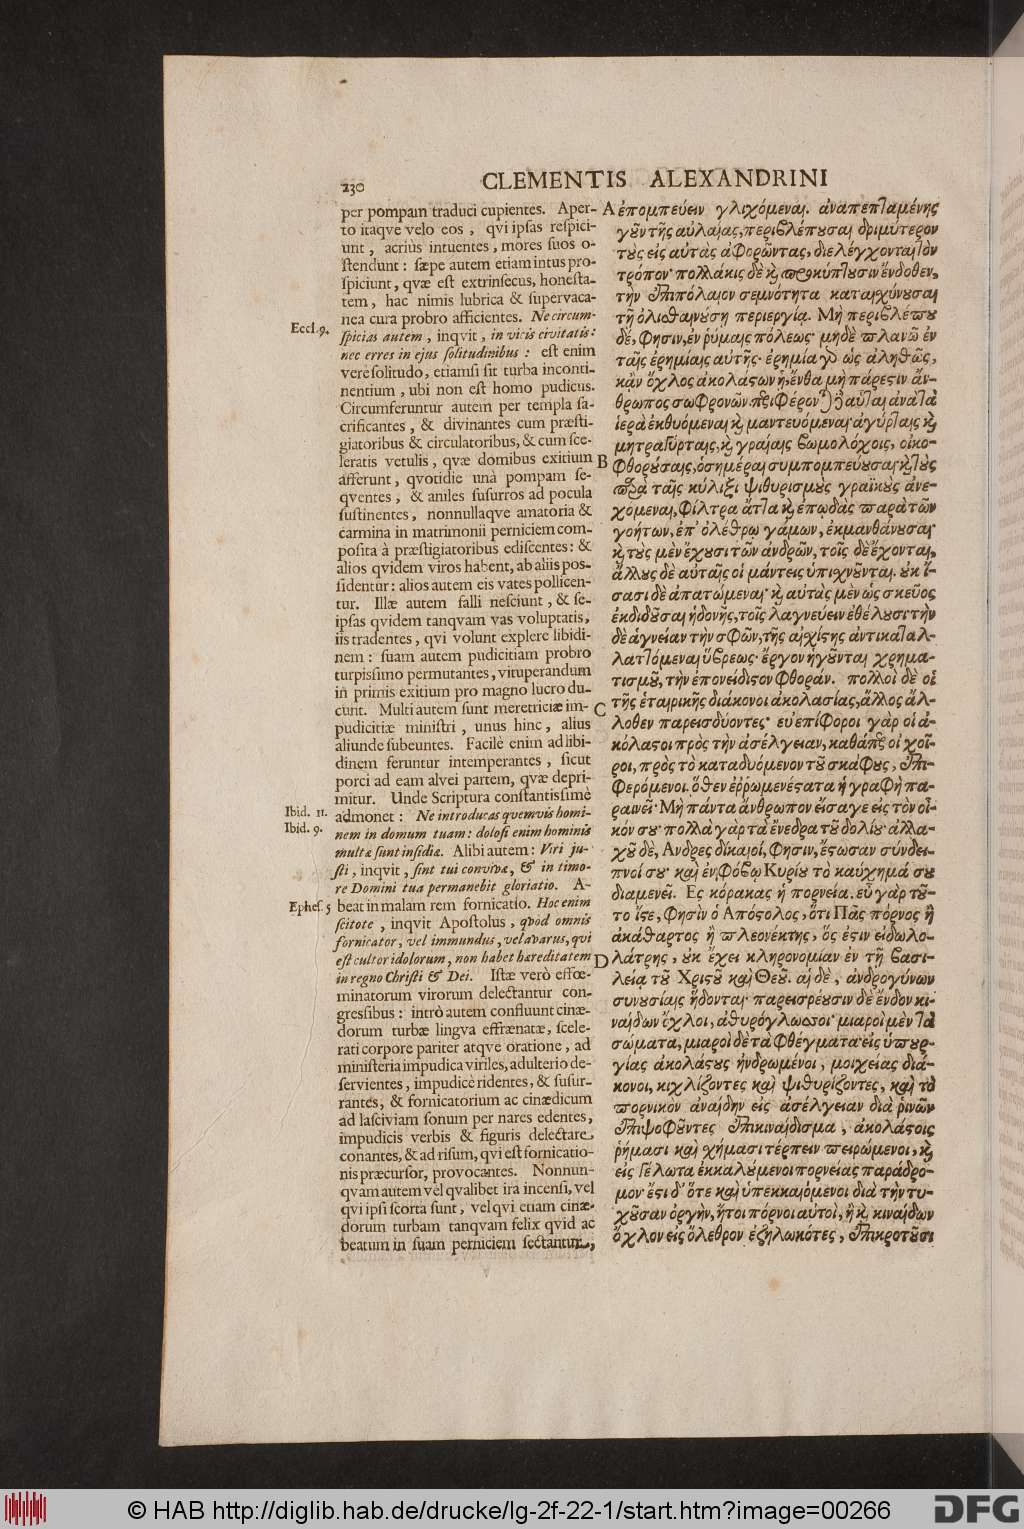 230
CLEMENTIS ALEXANDRINI
per pompam traduci cupientes. Aper-
to itaqve velo eos, qvi ipsas respici-
unt, acriùs intuentes, mores suos o-
stendunt: sæpe autem etiam intus pro-
spiciunt, qvæ est extrinsecus, honesta-
tem, hac nimis lubrica & supervaca-
nea cura probro afficientes. Ne circum-
Eccl. 9.
spicias autem, inqvit, in vicis civitatis:
nec erres in ejus solitudinibus: est enim
verè solitudo, etiamsi sit turba inconti-
nentium, ubi non est homo pudicus.
Circumferuntur autem per templa sa-
crificantes, & divinantes cum præsti-
giatoribus & circulatoribus, & cum sce-
leratis vetulis, qvæ domibus exitium
afferunt, qvotidie unà pompam se-
qventes, & aniles susurros ad pocula
sustinentes, nonnullaqve amatoria &
carmina in matrimonii perniciem com-
posita à præstigiatoribus ediscentes: &
alios qvidem viros habent, ab aliis pos-
sidentur: alios autem eis vates pollicen-
tur. Illæ autem falli nesciunt, & se-
ipsas qvidem tanqvam vas voluptatis,
iis tradentes, qvi volunt explere libidi-
nem: suam autem pudicitiam probro
turpissimo permutantes, vituperandum
in primis exitium pro magno lucro du-
cunt. Multi autem sunt meretriciæ im-
pudicitiæ ministri, unus hinc, alius
aliunde subeuntes. Facilè enim ad libi-
dinem feruntur intemperantes, sicut
porci ad eam alvei partem, qvæ depri-
mitur. Unde Scriptura constantissimè
Ibid. 11.
admonet: Ne introducas qvemvis homi-
Ibid. 9.
nem in domum tuam: dolosi enim hominis
multæ sunt insidiæ. Alibi autem: Viri ju-
sti, inqvit, sint tui convivæ, & in timo-
re Domini tua permanebit gloriatio. A-
Ephes. 5
beat in malam rem fornicatio. Hoc enim
scitote, inqvit Apostolus, qvod omnis
fornicator, vel immundus, vel avarus, qvi
est cultor idolorum, non habet hæreditatem
in regno Christi & Dei. Istæ verò effœ-
minatorum virorum delectantur con-
gressibus: intrò autem confluunt cinæ-
dorum turbæ lingva effrænatæ, scele-
rati corpore pariter atqve oratione, ad
ministeria impudica viriles, adulterio de-
servientes, impudicè ridentes, & susur-
rantes, & fornicatorium ac cinædicum
ad lasciviam sonum per nares edentes,
impudicis verbis & figuris delectare
conantes, & ad risum, qvi est fornicatio-
nis præcursor, provocantes. Nonnun-
qvam autem vel qvalibet ira incensi, vel
qvi ipsi scorta sunt, vel qvi etiam cinæ-
dorum turbam tanqvam felix qvid ac
beatum in suam perniciem sectantur,
A ἐπομπεύειν γλιχόμεναι. ἀναπεπταμένης
γοῦν τῆς αὐλαίας, περιβλέπουσαι δριμύτερον
τοὺς εἰς αὐτὰς ἀφορῶντας, διελέγχονται τὸν
τρόπον· πολλάκις δὲ καὶ προκύπτουσιν ἔνδοθεν,
τὴν ἐπιπόλαιον σεμνότητα καταισχύνουσαι
τῇ ὀλισθαινούσῃ περιεργίᾳ. Μὴ περιβλέπου
δέ, φησιν, ἐν ῥύμαις πόλεως· μηδὲ πλανῶ ἐν
ταῖς ἐρημίαις αὐτῆς· ἐρημία γὰρ ὡς ἀληθῶς,
κἂν ὄχλος ἀκολάστων ᾖ, ἔνθα μὴ πάρεστιν ἄν-
θρωπος σωφρονῶν. περιφέρονται δὲ αὗται ἀνὰ τὰ
ἱερὰ ἐκθυόμεναι καὶ μαντευόμεναι ἀγύρταις καὶ
μητραγύρταις, καὶ γραίαις βωμολόχοις, οἰκο-
B φθορούσαις, ὁσημέραι συμπομπεύουσαι καὶ τοὺς
παρὰ ταῖς κύλιξι ψιθυρισμοὺς γραϊκοὺς ἀνε-
χόμεναι, φίλτρα ἄττα καὶ ἐπῳδὰς παρὰ τῶν
γοήτων, ἐπ' ὀλέθρῳ γάμων, ἐκμανθάνουσαι·
καὶ τοὺς μὲν ἔχουσι τῶν ἀνδρῶν, τοῖς δὲ ἔχονται,
ἄλλους δὲ αὐταῖς οἱ μάντεις ὑπισχνοῦνται. οὐκ ἴ-
σασι δὲ ἀπατώμεναι· καὶ αὐτὰς μὲν ὡς σκεῦος
ἐκδιδοῦσαι ἡδονῆς, τοῖς λαγνεύειν ἐθέλουσι τὴν
δὲ ἁγνείαν τὴν σφῶν, τῆς αἰσχίστης ἀντικαταλ-
λαττόμεναι ὕβρεως· ἔργον ἡγοῦνται χρημα-
τισμοῦ, τὴν ἐπονείδιστον φθοράν. πολλοὶ δὲ οἱ
C τῆς ἑταιρικῆς διάκονοι ἀκολασίας, ἄλλος ἄλ-
λοθεν παρεισδύοντες· εὐεπίφοροι γὰρ οἱ ἀ-
κόλαστοι πρὸς τὴν ἀσέλγειαν, καθάπερ οἱ χοῖ-
ροι, πρὸς τὸ καταδυόμενον τοῦ σκάφους, ἐπι-
φερόμενοι. ὅθεν ἐῤῥωμενέστατα ἡ γραφὴ πα-
ραινεῖ· Μὴ πάντα ἄνθρωπον εἴσαγε εἰς τὸν οἶ-
κόν σου· πολλὰ γὰρ τὰ ἔνεδρα τοῦ δολίου· ἀλλα-
χοῦ δὲ, Ἄνδρες δίκαιοί, φησιν, ἔστωσαν σύνδει-
πνοί σου· καὶ ἐν φόβῳ Κυρίου τὸ καύχημά σου
διαμενεῖ. Ἐς κόρακας ἡ πορνεία. εὖ γὰρ τοῦ-
το ἴστε, φησὶν ὁ Ἀπόστολος, ὅτι Πᾶς πόρνος ἢ
ἀκάθαρτος ἢ πλεονέκτης, ὅς ἐστιν εἰδωλο-
D λάτρης, οὐκ ἔχει κληρονομίαν ἐν τῇ βασι-
λείᾳ τοῦ Χριστοῦ καὶ Θεοῦ. αἱ δὲ, ἀνδρογύνων
συνουσίαις ἥδονται· παρεισρέουσιν δὲ ἔνδον κι-
ναίδων ὄχλοι, ἀθυρόγλωσσοι· μιαροὶ μὲν τὰ
σώματα, μιαροὶ δὲ τὰ φθέγματα· εἰς ὑπουρ-
γίας ἀκολάστους ἠνδρωμένοι, μοιχείας διά-
κονοι, κιχλίζοντες καὶ ψιθυρίζοντες, καὶ τὸ
πορνικὸν ἀναίδην εἰς ἀσέλγειαν διὰ ῥινῶν
ἐπιψοφοῦντες ἐπικιναίδισμα, ἀκολάστοις
ῥήμασι καὶ χήμασι τέρπειν πειρώμενοι, καὶ
εἰς γέλωτα ἐκκαλούμενοι πορνείας παράδρο-
μον· ἔστι δ' ὅτε καὶ ὑπεκκαιόμενοι διὰ τὴν τυ-
χοῦσαν ὀργὴν, ἤτοι πόρνοι αὐτοὶ, ἢ καὶ κιναίδων
ὄχλον εἰς ὄλεθρον ἐζηλωκότες, ἐπικροτοῦσι
© HAB http://diglib.hab.de/drucke/lg-2f-22-1/start.htm?image=00266
DFG